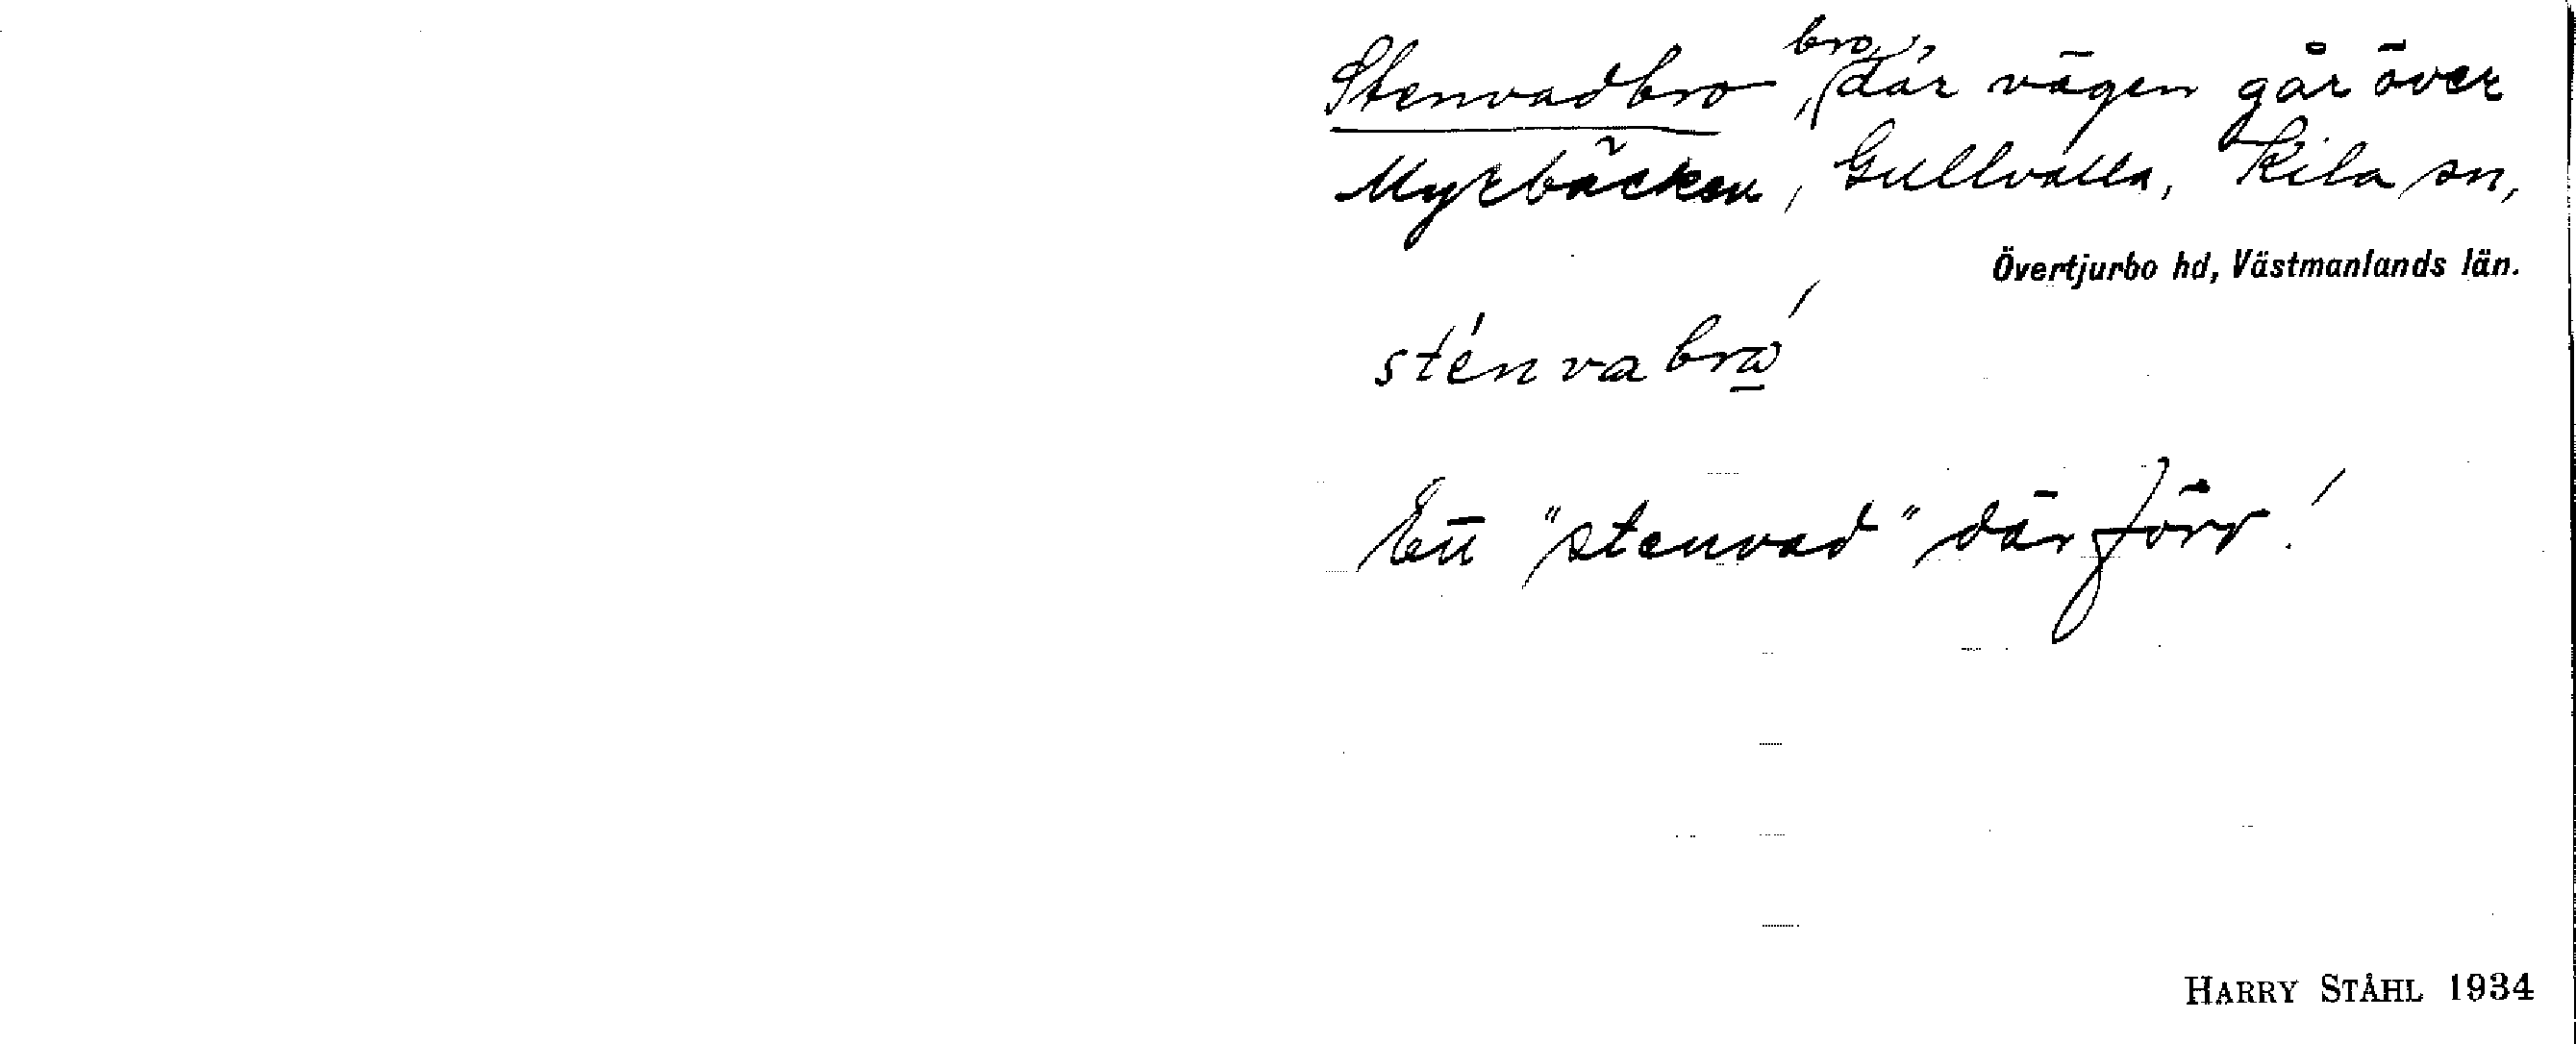 Stenvadbro, bro, där vägen går över
Myrbäcken, Gullvalla, Kila sn,
Övertjurbo hd, Västmanlands län.
sténvabrώ̠
Ett "stenvad" där förr!
HARRY STÅHL 1934